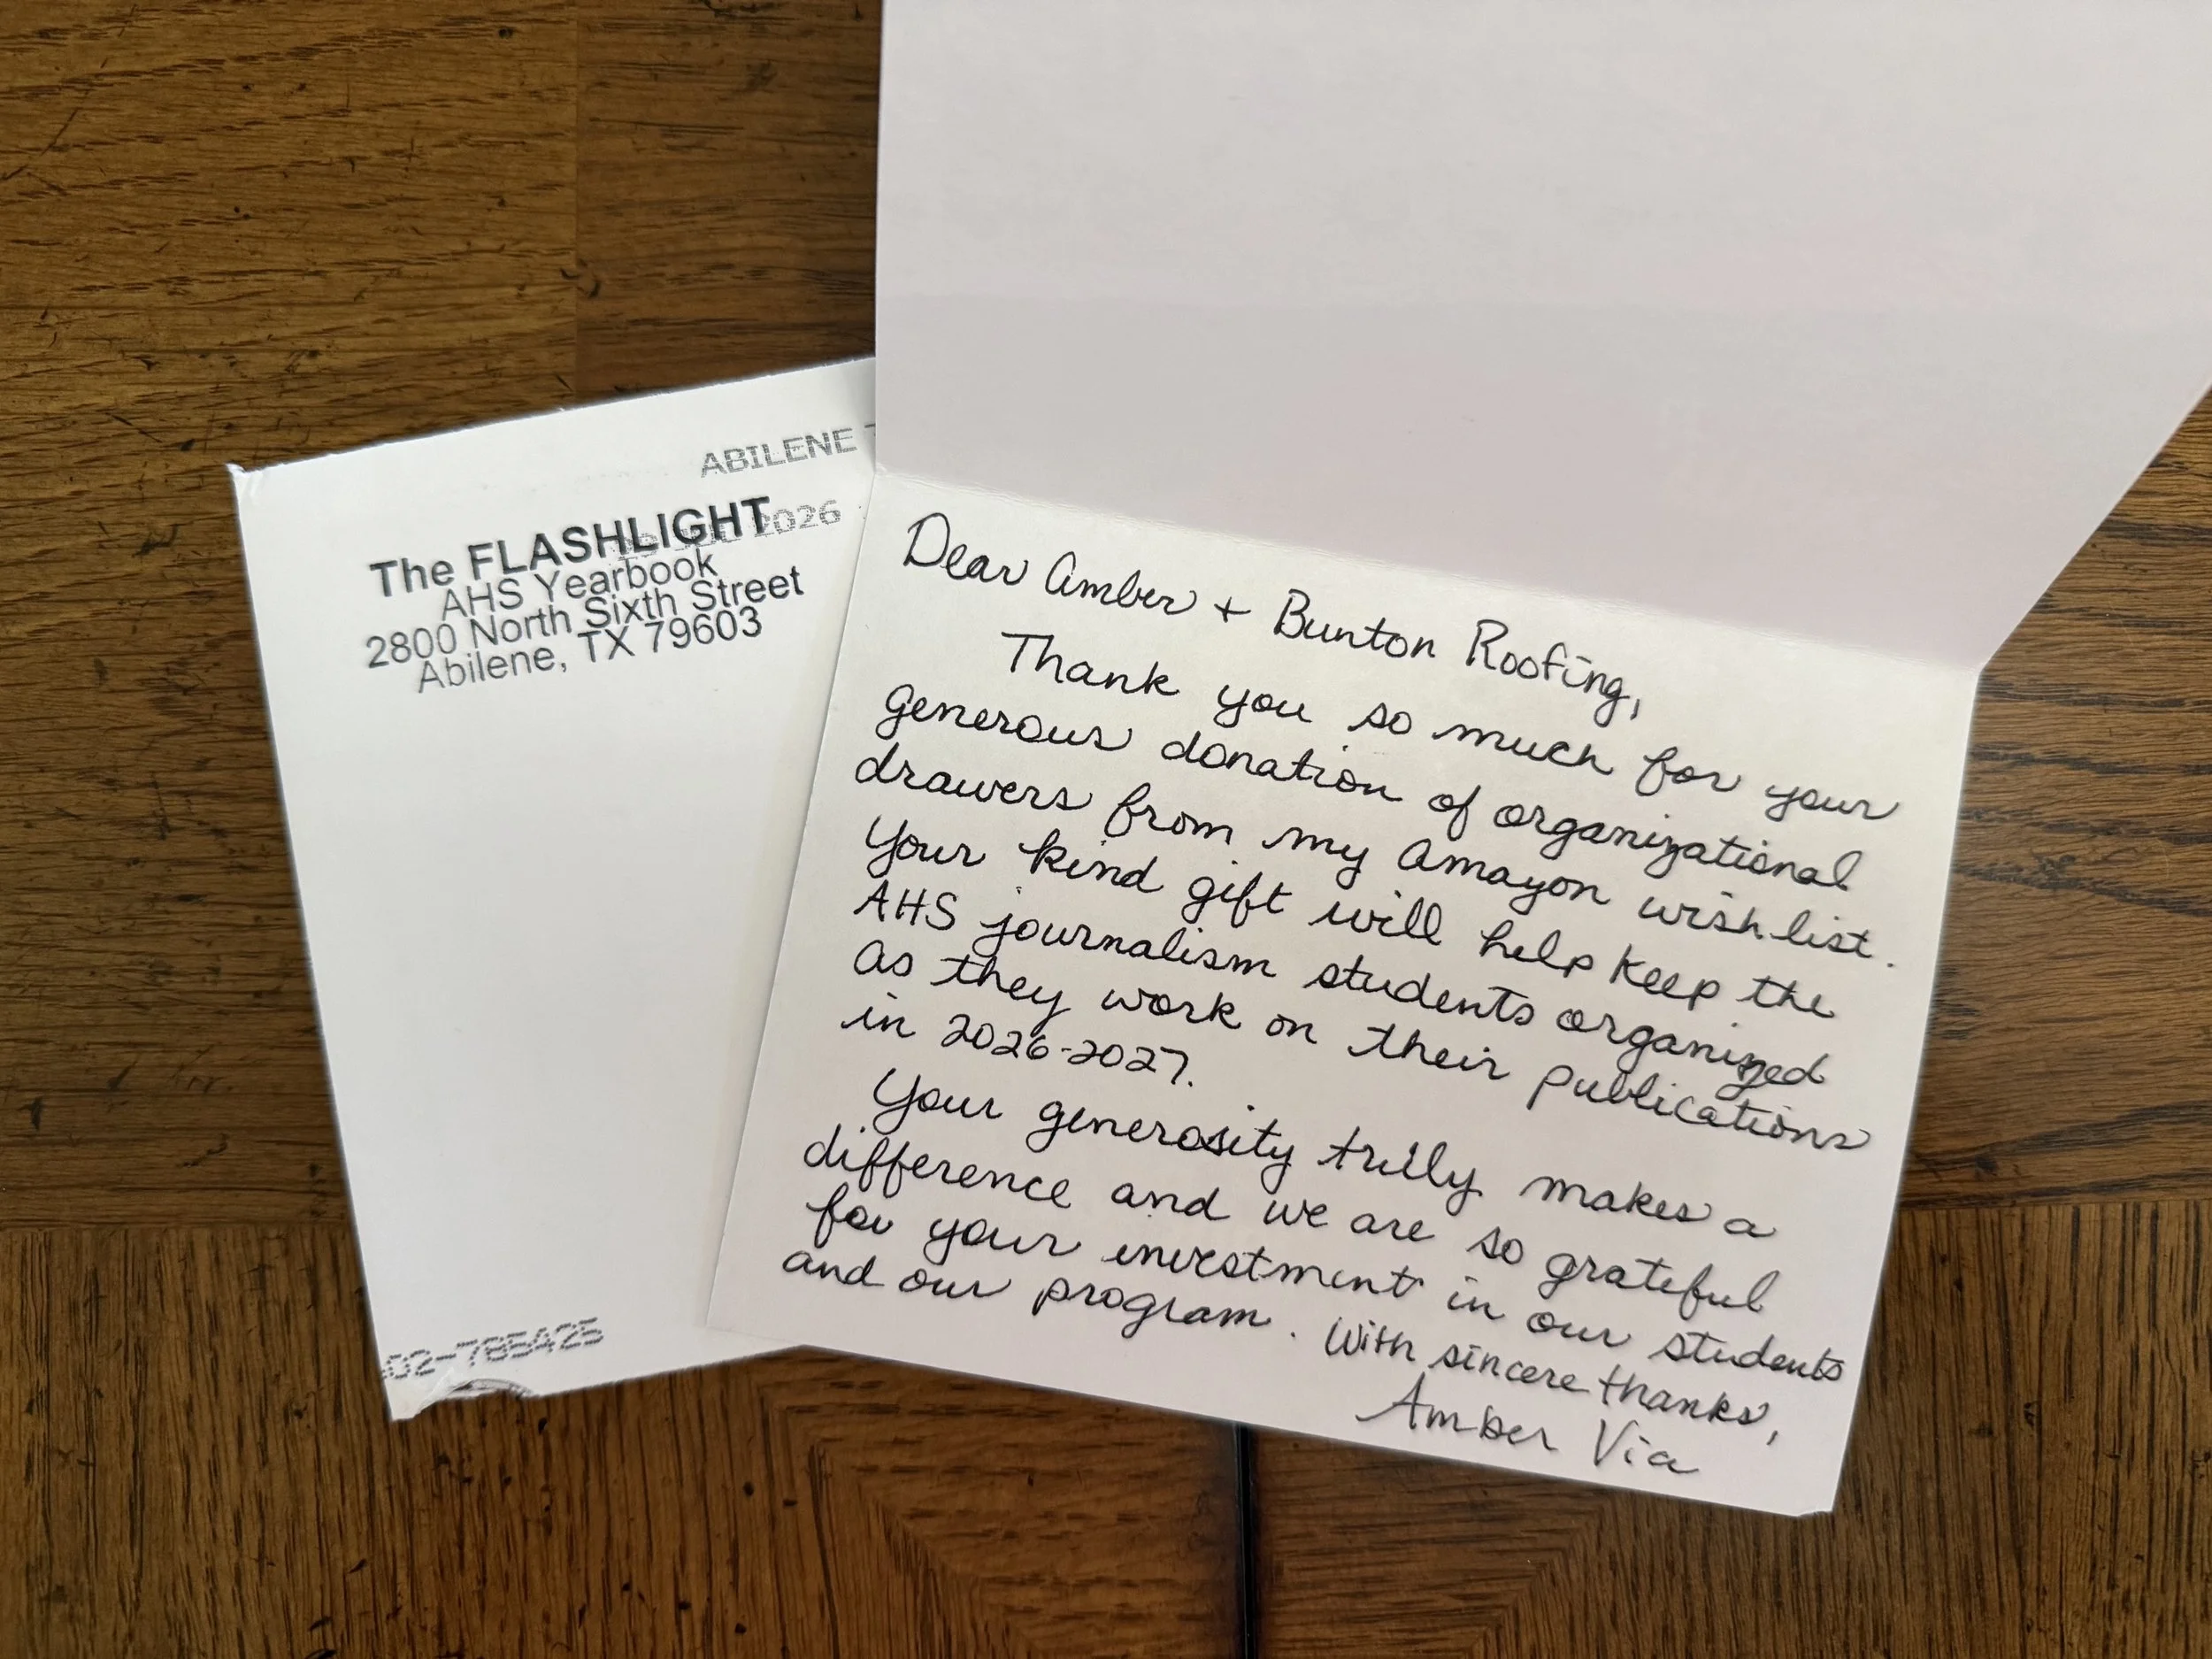 ABILENE
The FLASHLIGHT
2026
AHS Yearbook
2800 North Sixth Street
Abilene, TX 79603
02-785425
Dear Amber + Bunton Roofing,
Thank you so much for your
generous donation of organizational
drawers from my Amazon wish list.
Your kind gift will help keep the
AHS journalism students organized
as they work on their publications
in 2026-2027.
Your generosity truly makes a
difference and we are so grateful
for your investment in our students
and our program. With sincere thanks,
Amber Via